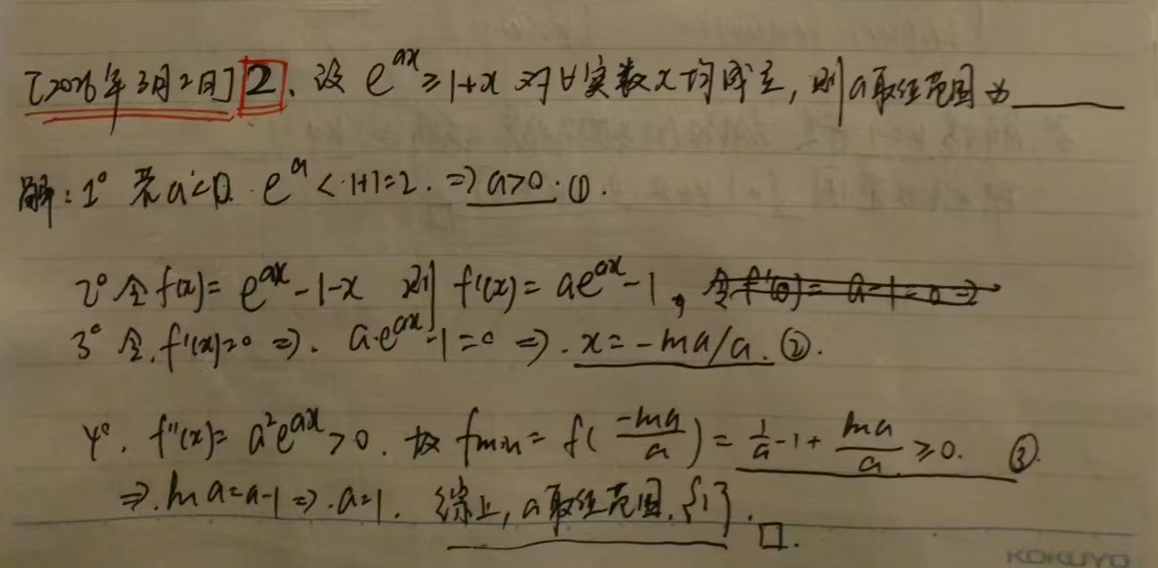 [2026年3月2日] 2、设 e^{ax} ≥ 1+x 对∀实数x均成立, 则a取值范围为______
解: 1° 若a<0. e^a < 1+1=2. ⇒ a>0. ①.
2° 令f(x)= e^{ax}-1-x 则 f'(x)= ae^{ax}-1, 令f'(0)= a-1=0 ⇒
3° 令, f'(x)=0 ⇒. a·e^{ax}-1=0 ⇒. x=-lna/a. ②.
4°. f''(x)= a²e^{ax}>0. 故 fmin= f(-lna/a)= 1/a-1+lna/a ≥0. ③.
⇒. ln a=a-1 ⇒. a=1. 综上, a取值范围. {1}. □.
KOKUYO